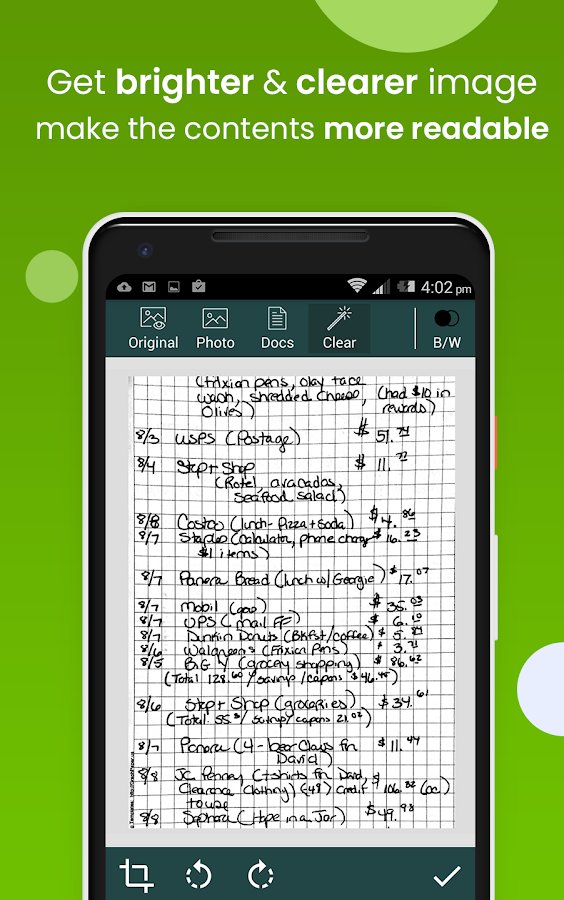 Get brighter & clearer image
make the contents more readable
4:02 pm
Original Photo Docs Clear B/W
(Frixion pens, olay face
wash, shredded cheese, (had $10 in
Olives) rewards)
8/3 USPS (Postage) $51.74
8/4 Stop + Shop $11.77
(Rotel, avacados,
seafood salad)
8/8 Costco (lunch - Pizza + Soda) $14.86
8/7 Staples (calculator, phone charger $16.23
$1 items)
8/7 Panera Bread (lunch w/ Georgie) $17.07
8/7 Mobil (gas) $35.03
8/7 UPS (mail FF) $6.10
8/7 Dunkin Donuts (BKfst/coffee) $5.
8/6 Walgreens (Frixion Pens) $3.71
8/5 BiG Y (grocery shopping) $86.62
(Total 128.60 / savings/coupons $46.45)
8/6 Stop + Shop (groceries) $34.61
(Total 55. / savings/coupons 21.02)
8/7 Panera (4 - bear claws for $11.44
David)
8/8 JC Penney (t-shirts for David, $
Clearance Clothing) (48) credit 106.82 (cc)
to use
8/8 Sephora (Hope in a Jar) $49.98